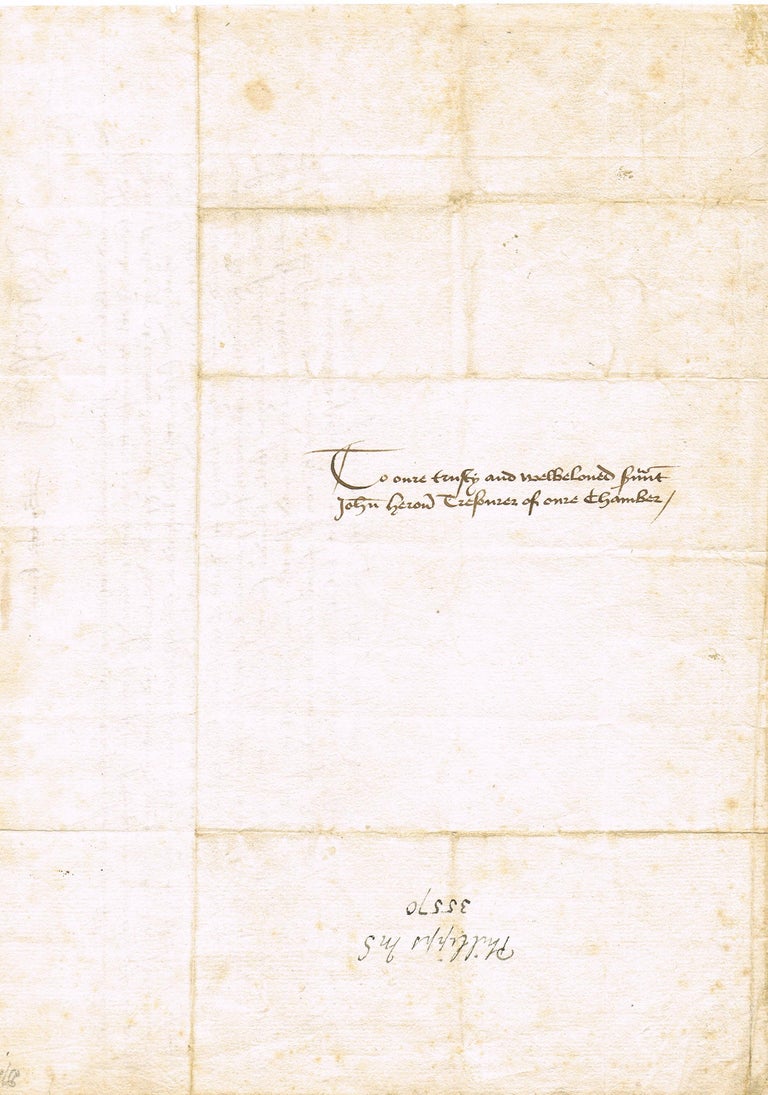 To oure trusty and welbeloued s͛uãnt
John̄ heron̄ Tresourer of oure Chamber /
Phillipps MS
35570